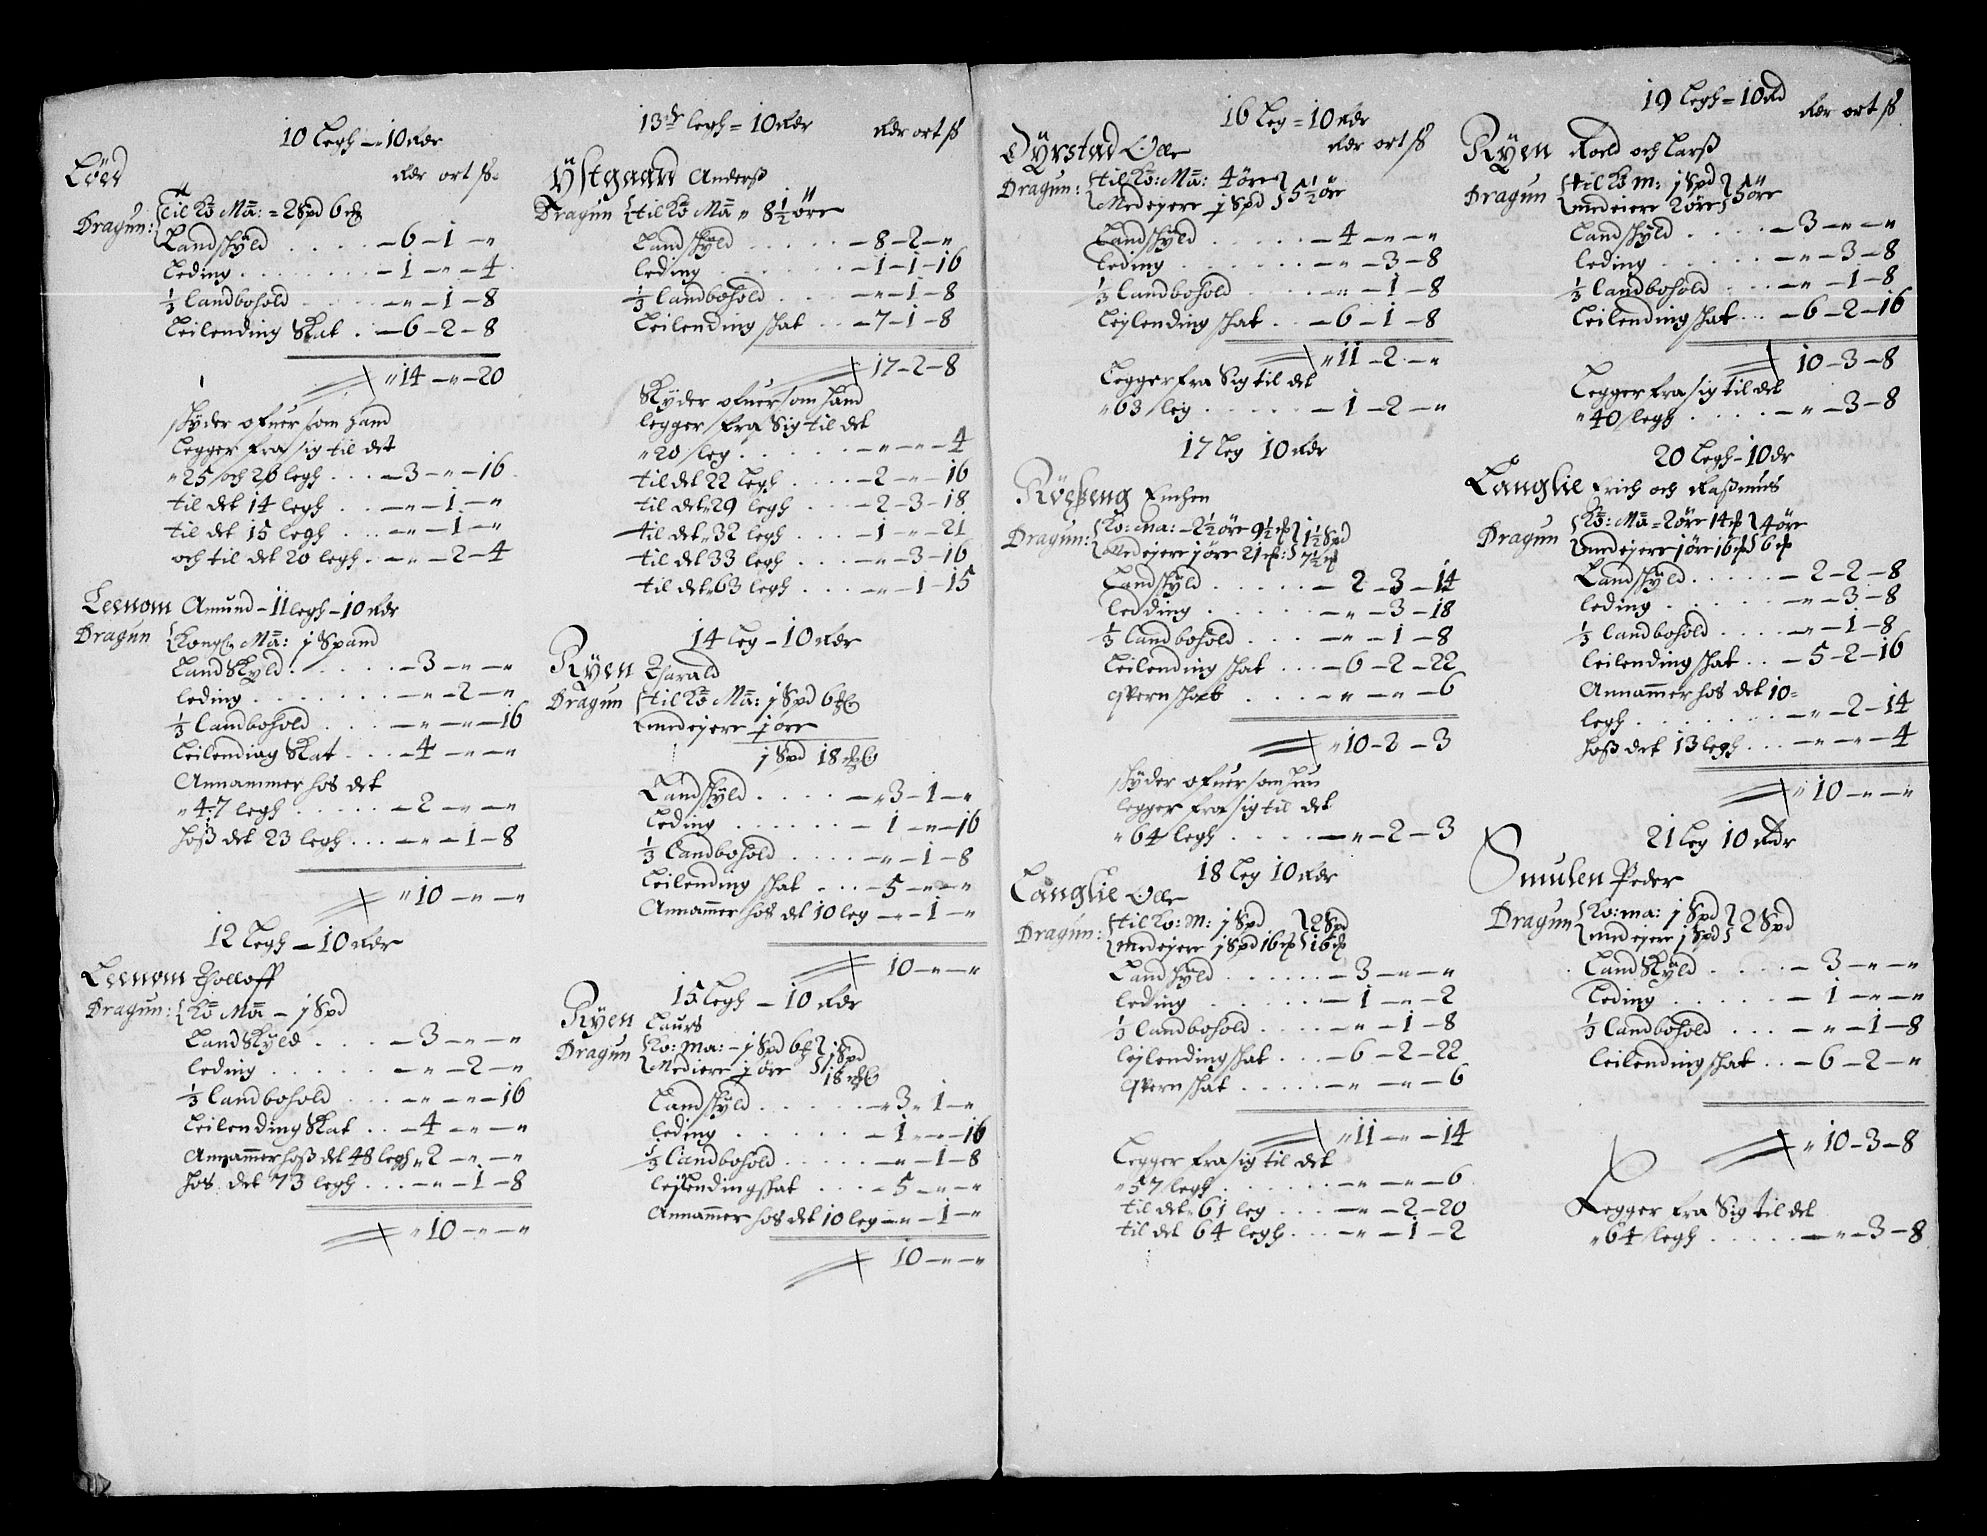 10 Legh – 10 Rdr
Rdr ort ß
Löed
Dragun: Til Ko Ma: = 2 Spd 6
Landskyld . . . . – 6 – 1 – „
Leding . . . . . . – 1 – „ – 4
⅓ Landbohold . . . – „ – 1 – 8
Leilending Skat . – 6 – 2 – 8
„ 14 – „ – 20
skyder ofuer som hand
Legger fra sig til det
„ 25 och 26 legh . . . – 3 – „ – 16
til det 14 legh . . – „ – 1 – „
til det 15 legh . . . – „ – 1 – „
och til det 20 legh . – „ – 2 – 4
Leenom Amund – 11 legh – 10 Rdr
Dragun Kong Ma: j Spand
Land Skyld . . . . . – 3 – „ – „
leding . . . . . . – „ – 2 – „
⅓ Landbohold . . . – „ – „ – 16
Leilending Skat . . . – 4 – „ – „
Annammer hos det
„ 47 legh . . . . . – 2 – „ – „
hoß det 23 legh . . . – „ – 1 – 8
„ 10 – „ – „
12 Legh – 10 Rdr
Leenom Tholloff
Dragun: Ko Ma – j Spd
Land Skyld . . . – 3 – „ – „
leding . . . . . – „ – 2 – „
⅓ Landbohold . . . – „ – „ – 16
Leilending Skat . . – 4 – „ – „
Annammer hoß det 48 legh „ 2 – „ – „
hos det 73 legh . . . – „ – 1 – 8
„ 10 – „ – „
13de legh = 10 Rdr Rdr ort ß
Ystgaard Anderß
Dragun til Ko Ma „ 8½ öre
Land skyld . . . . . – 8 – 2 – „
leding . . . . . . – 1 – 1 – 16
⅓ Landbohold . . . – „ – 1 – 8
Leilending skat . . – 7 – 1 – 8
17 – 2 – 8
Skyder ofuer som hand
legger fra Sig til det
„ 20 leg . . . . . – „ – „ – 4
til det 22 Legh . . . – 2 – „ – 16
til det 29 legh . . . – 2 – 3 – 18
til det „ 32 legh . . . – 1 – „ – 21
til det 33 legh . . . – „ – 3 – 16
til det 63 legh . . . – „ – 1 – 15
14 Leg – 10 Rdr
Ryen Harald
Dragun til Ko Ma: j Spd 6
medejere j öre
j Spd 18
Landskyld . . . . – „ 3 – 1 – „
Leding . . . . . – 1 – „ – 16
⅓ Landbohold . . . . – „ – 1 – 8
Leilending skat . . . – 5 – „ – „
Annammer hos det 10 leg – „ – 1 – „
10 – „ – „
15 Legh – 10 Rdr
Ryen Laurs
Dragun Ko: ma: – j Spd 6 j Spd
Mediere j öre 18
Landskyld . . . . . – „ 3 „ 1 – „
leding . . . . . – 1 – „ – 16
⅓ Landbohold . . . . . – „ – 1 – 8
lejlendingskat . . . – 5 – „ – „
Annammer hos det 10 leg – „ – 1 – „
10 – „ – „
16 Leg = 10 Rdr
Rdr ort ß
Öyrstad Olle
Dragun: til Ko: Ma: 4 öre 5½ öre
Medejere j Spd
Landskyld . . . . . – 4 – „ – „
leding . . . . . . – „ – 3 – 8
⅓ Landbohold . . . – „ – 1 – 8
Lejlending skat . . – 6 – 1 – 8
„ 11 – 2 – „
Legger fra Sig til det
„ 63 leg . . . . . – 1 – 2 – „
17 Leg 10 Rdr
Röeßeng Enchen
Dragun: Ko: Ma: – 2½ öre 9½ 1½ Spd
Medejere j öre 21 7½
Landskyld . . . . . – 2 – 3 – 14
ledding . . . . . – „ – 3 – 18
⅓ Landbohold . . . . – „ – 1 – 8
Leilending skat . . . – 6 – 2 – 22
qvern skat . . . – „ – „ – 6
„ 10 – 2 – 3
skyder ofuer som hun
legger fra sig til det
„ 64 legh . . . . . – „ – 2 – 3
18 Leg 10 Rdr
Langlie Olle
Dragun: til Ko: M: j Spd 2 Spd
medejere j Spd 16 16
Land skyld . . . . . – 3 – „ – „
leding . . . . . – 1 – „ – 2
⅓ Landbohold . . . . – „ – 1 – 8
lejlending skat . . . – 6 – 2 – 22
qvern skat . . . . . – „ – „ – 6
„ 11 – „ – 14
Legger fra sig til det
„ 57 legh . . . . . . – „ – „ – 6
til det „ 61 leg . . . – „ – 2 – 20
til det 64 legh . . . – „ – 1 – 2
19 Legh = 10 Rd
Rdr ort ß
Ryen Roeld och Larß
Dragun til Ko m: j Spd 5 öre
medeiere 2 öre
Landskyld . . . . – 3 – „ – „
leding . . . . . – „ – 3 – 8
⅓ Landbohold . . . – „ – 1 – 8
Leilending skat . . – 6 – 2 – 16
10 – 3 – 8
Legger fra sig til det
„ 40 legh . . . . – „ – 3 – 8
20 Legh – 10 dr
Langlie Erich och Raßmus
Dragun Ko: Ma = 2 öre 14 4 öre
medejere j öre 16 6
Landskyld . . . . . – 2 – 2 – 8
leding . . . . . . – „ – 3 – 8
⅓ Landbohold . . . . – „ – 1 – 8
leilending skat . . – 5 – 2 – 16
Annammer hos det 10 =
legh . . . . . . . – „ – 2 – 14
hoß det 13 legh . . . – „ – „ – 4
„ 10 – „ – „
21 Leg 10 Rdr
Smulen Peder
Dragun Ko: ma: j Spd 2 Spd
medejere j Spd
Land Skyld . . . . – 3 – „ – „
Leding . . . . . . – 1 – „ – „
⅓ Landbohold . . . – „ – 1 – 8
Leilending skat . . – 6 – 2 – „
„ 10 – 3 – 8
Legger fra Sig til det
„ 64 legh . . . . . – „ – 3 – 8